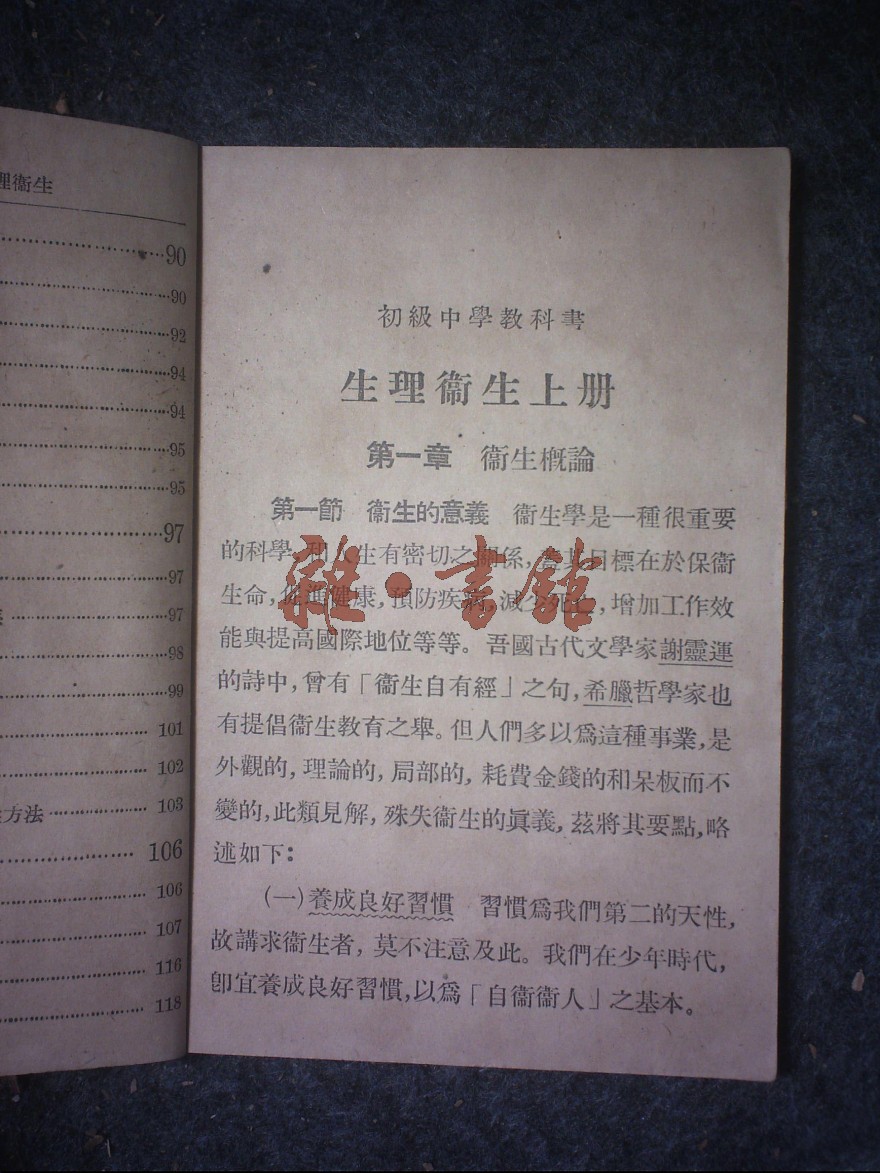 理衞生
90
90
92
94
94
95
95
97
97
97
98
99
101
102
方法 103
106
106
107
116
118
初級中學教科書
生理衞生上册
第一章 衞生概論
第一節 衞生的意義 衞生學是一種很重要
的科學,和人生有密切之關係,蓋其目標在於保衞
生命,促進健康,預防疾病,減少死亡,增加工作效
能與提高國際地位等等。吾國古代文學家謝靈運
的詩中,曾有「衞生自有經」之句,希臘哲學家也
有提倡衞生教育之舉。但人們多以爲這種事業,是
外觀的,理論的,局部的,耗費金錢的和呆板而不
變的,此類見解,殊失衞生的眞義,茲將其要點,略
述如下:
(一)養成良好習慣 習慣爲我們第二的天性,
故講求衞生者,莫不注意及此。我們在少年時代,
卽宜養成良好習慣,以爲「自衞衞人」之基本。
雜·書館